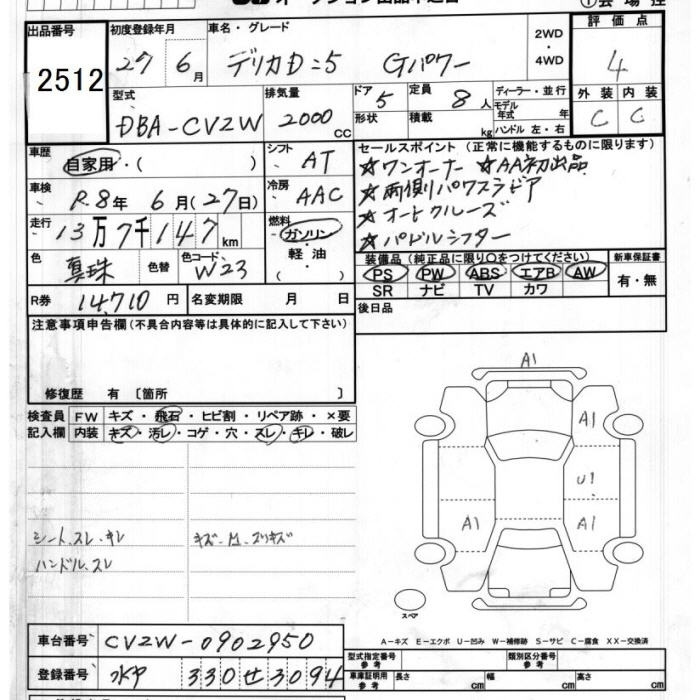 ①会場控
出品番号
2512
初度登録年月
27 6月
車名・グレード
デリカD:5 Gパワー
2WD
・
4WD
評価点
4
外装 内装
C C
型式
DBA-CV2W
排気量
2000 CC
ドア 5
形状
定員 8 人
積載 kg
ディーラー・並行
モデル
年式 年
ハンドル 左・右
車歴
自家用・( )
シフト AT
セールスポイント (正常に機能するものに限ります)
☆ワンオーナー ☆AA初出品
☆両側パワスラドア
☆オートクルーズ
☆パドルシフター
車検
R.8年 6月(27日)
冷房 AAC
走行
13万7千147km
燃料
ガソリン
・
軽・油
( )
色
真珠
色替
色コード
W23
装備品 (純正品に限り○をつけてください)
PS PW ABS エアB AW
SR ナビ TV カワ
新車保証書
有・無
R券 14,710円
名変期限 月 日
後日品
注意事項申告欄 (不具合内容等は具体的に記入して下さい)
修復歴 有 〔箇所 〕
検査員
記入欄
FW キズ・飛石・ヒビ割・リペア跡・×要
内装 キズ・汚レ・コゲ・穴・スレ・キレ・破レ
シート.スレ.キレ
ハンドル.スレ
キズ.M.スリキズ
A1
A1
U1
A1
A1
スペア
A-キズ E-エクボ U-凹み W-補修跡 S-サビ C-腐食 XX-交換済
車台番号 CV2W-0902950
登録番号 水戸 330せ3094
型式指定番号
参考
類別区分番号
参考
車庫証明用
参考
長さ cm 幅 cm 高さ cm